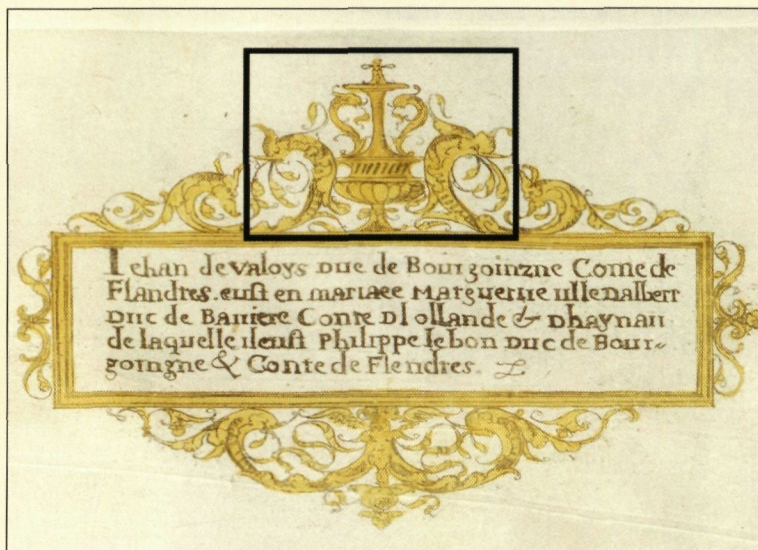 Iehan de valoys Duc de Bourgoingne Comte de
Flandres. eust en mariaee Marguerite fille dalbert
Duc de Baviere Conte D hollande & Dhaynau
de laquelle ileust Philippe le bon Duc de Bour-
goingne & Conte de Flendres.